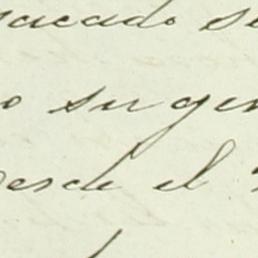 sacado su
o su gen
desde el